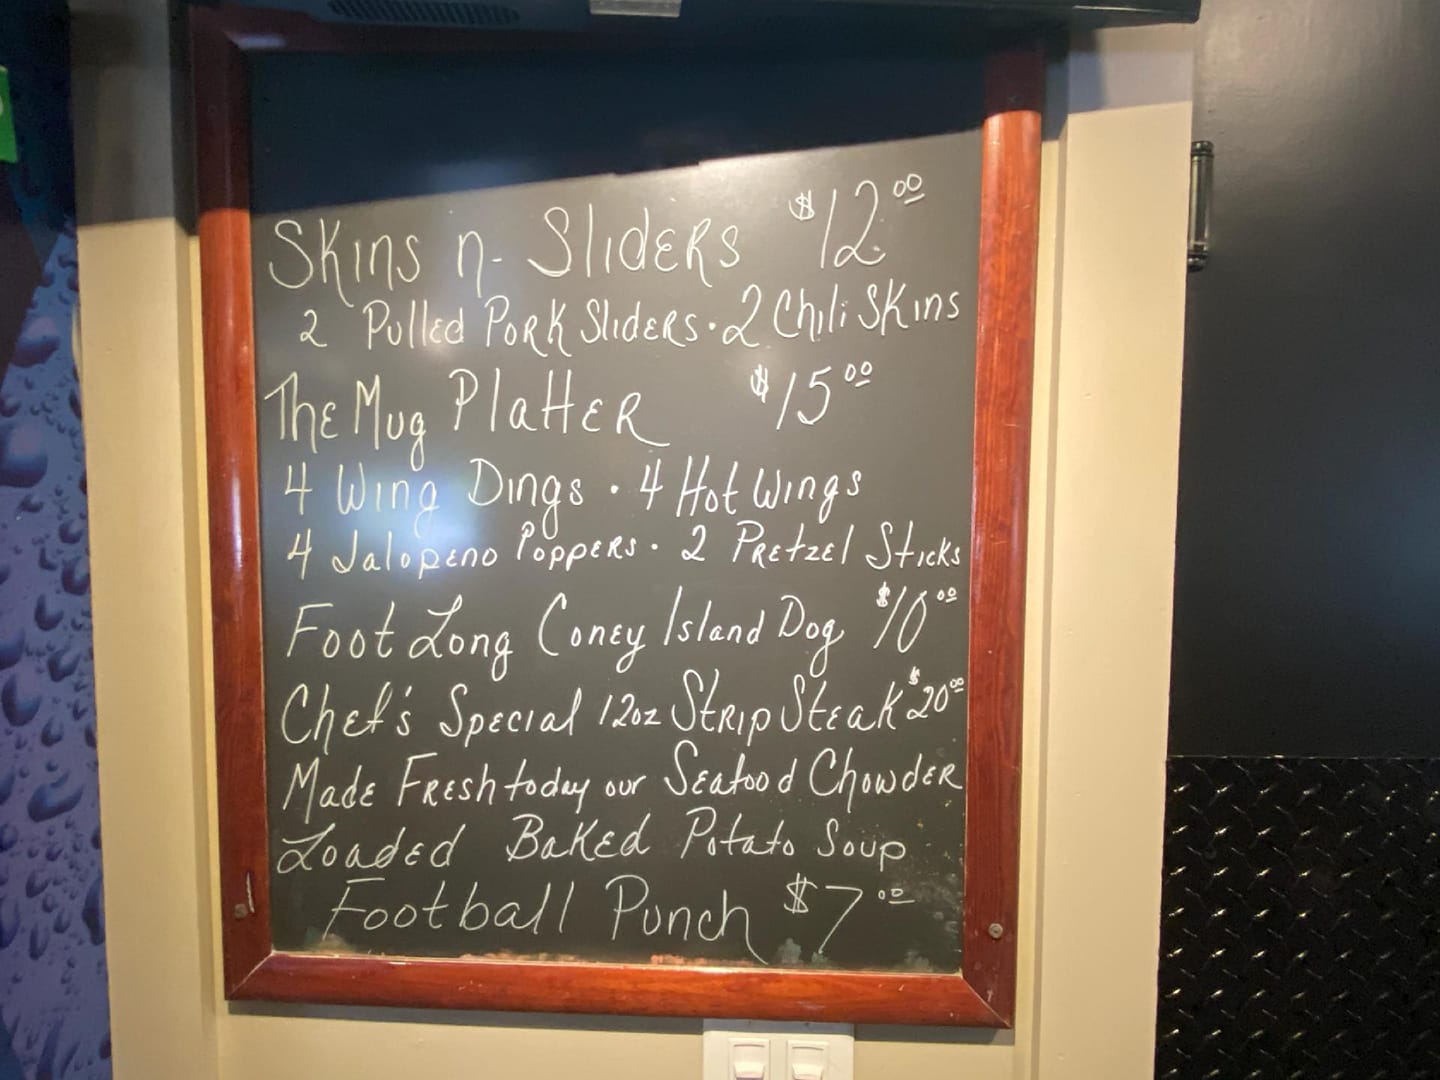 Skins n- Sliders $12.00
2 Pulled Pork Sliders · 2 Chili Skins
The Mug Platter $15.00
4 Wing Dings · 4 Hot Wings
4 Jalopeno Poppers · 2 Pretzel Sticks
Foot Long Coney Island Dog $10.00
Chef's Special 12oz Strip Steak $20.00
Made Fresh today our Seafood Chowder
Loaded Baked Potato Soup
Football Punch $7.00